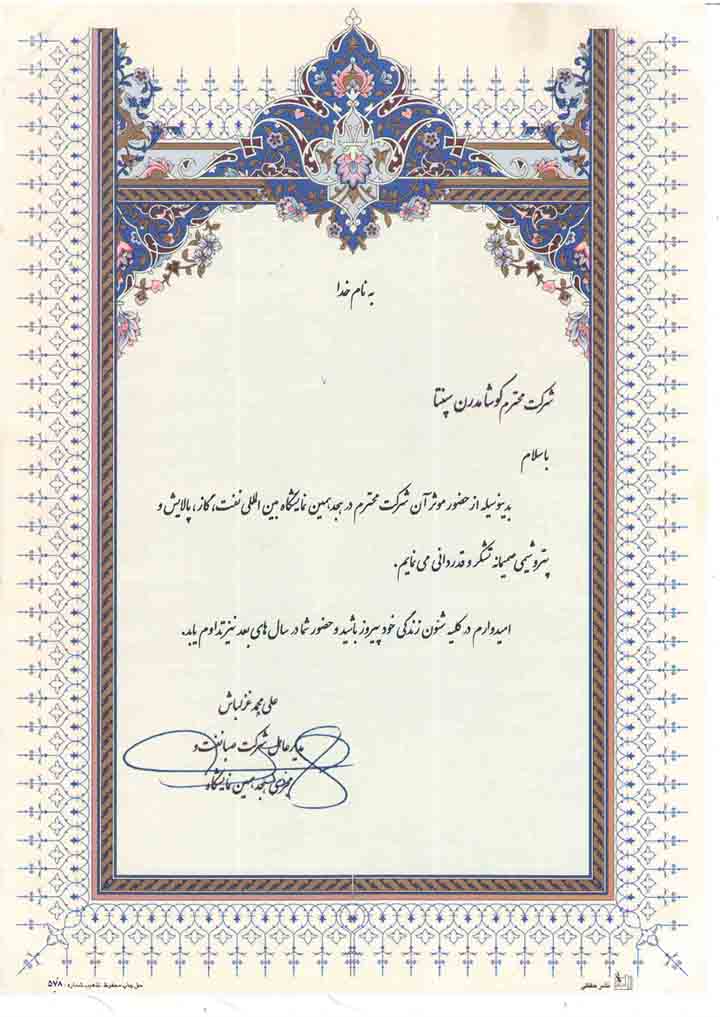 به نام خدا
شرکت محترم کوشا مدرن سپنتا
با سلام
بدینوسیله از حضور موثر آن شرکت محترم در هجدهمین نمایشگاه بین المللی نفت، گاز، پالایش و
پتروشیمی صمیمانه تشکر و قدردانی می نمایم.
امیدوارم در کلیه شئون زندگی خود پیروز باشید و حضور شما در سال های بعد نیز تداوم یابد.
علی محمد
مدیرعامل شرکت صبا نفت و
مجری هجدهمین نمایشگاه
نشر حقانی
حق چاپ محفوظ. تذهیب شماره: ۵۷۸